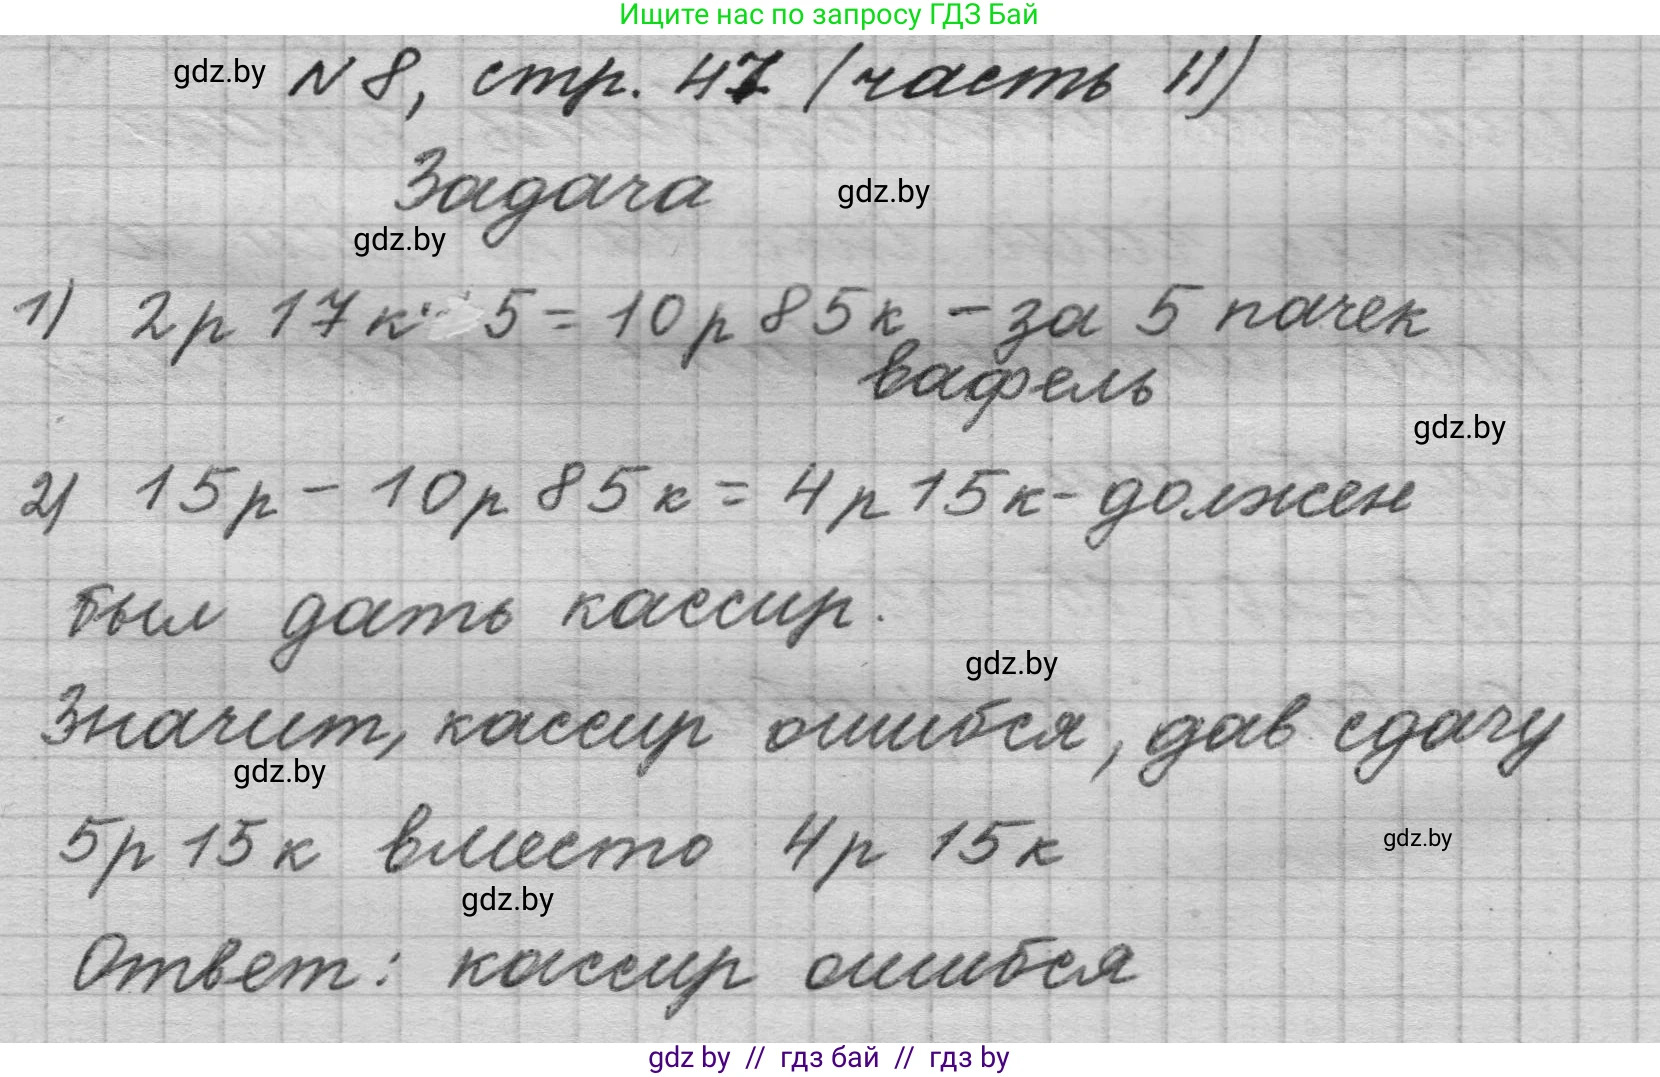 Ищите нас по запросу ГДЗ Бай
gdz.by N 8, стр. 47 (часть II)
Задача gdz.by
gdz.by
1) 2р 17к · 5 = 10р 85к - за 5 пачек
вафель
gdz.by
2) 15р - 10р 85к = 4р 15к - должен
был дать кассир.
gdz.by
Значит, кассир ошибся, дав сдачу
gdz.by
5р 15к вместо 4р 15к gdz.by
gdz.by
Ответ: кассир ошибся
gdz by // гдз бай // гдз by